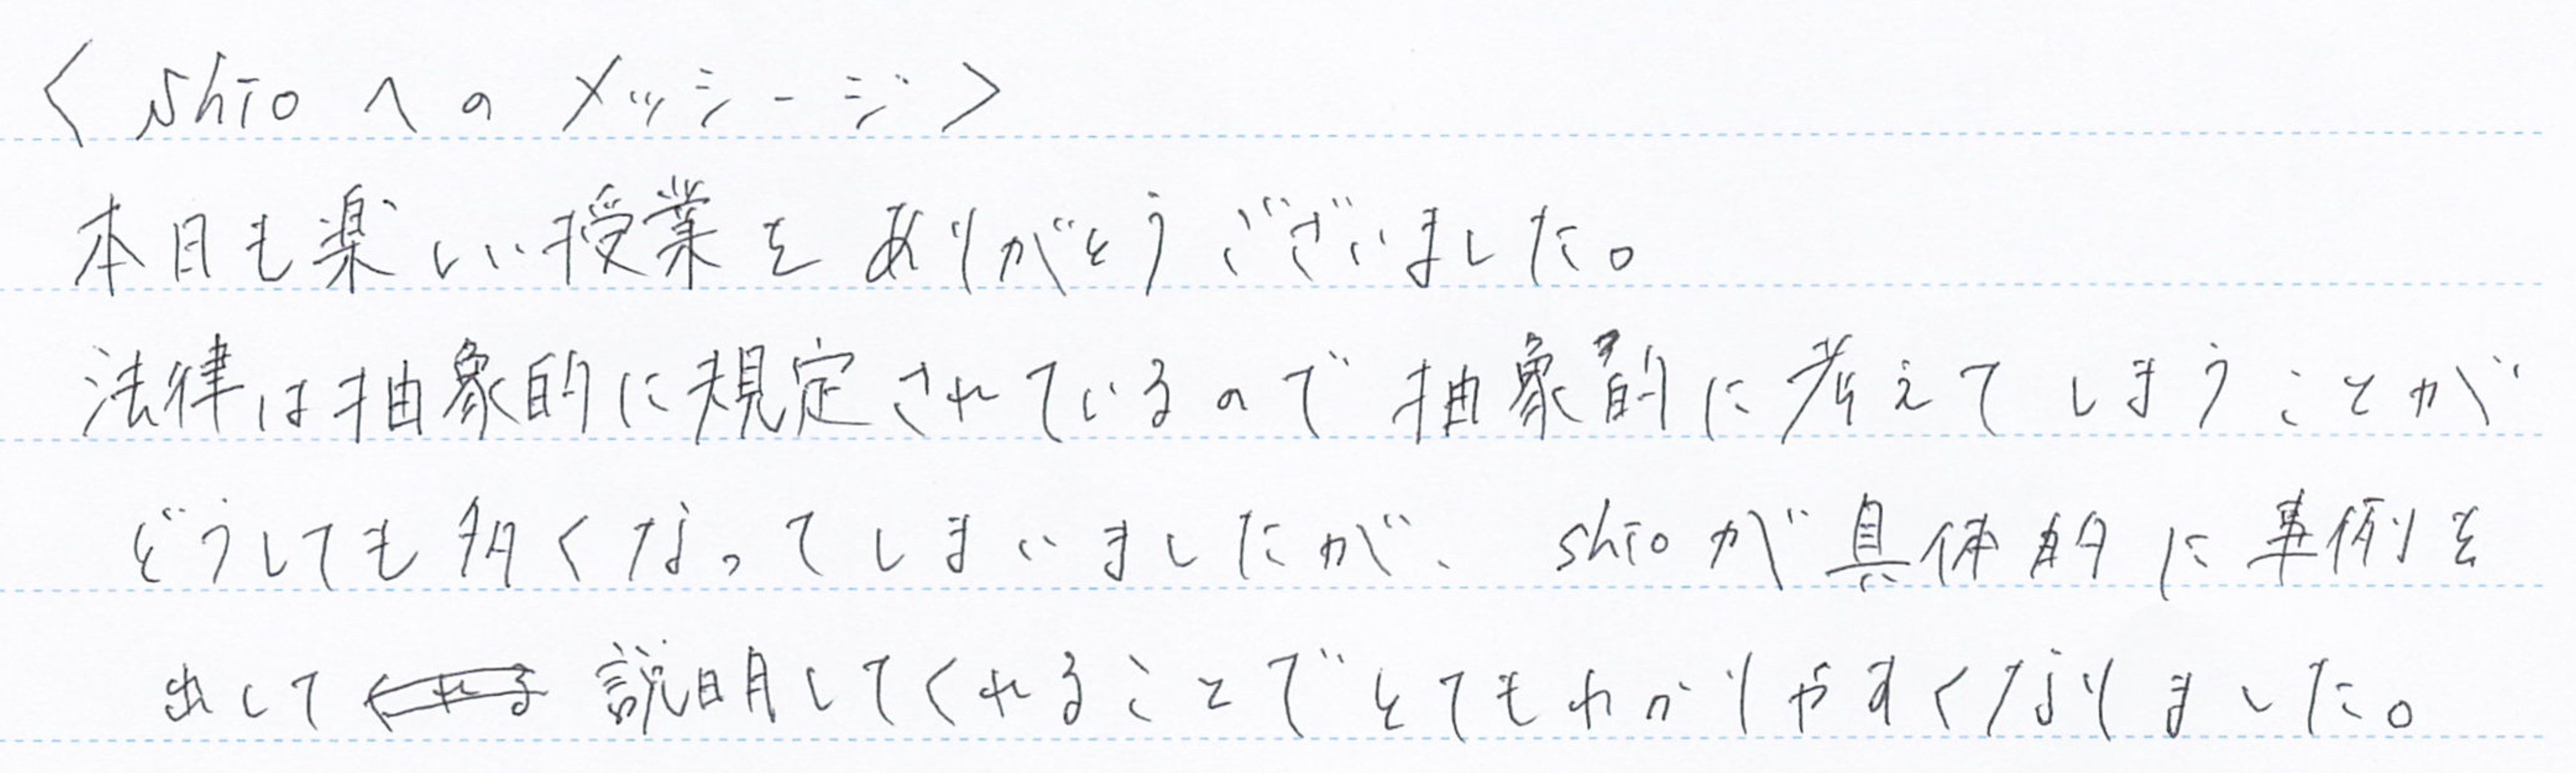 <shioへのメッセージ>
本日も楽しい授業をありがとうございました。
法律は抽象的に規定されているので抽象的に考えてしまうことが
どうしても多くなってしまいましたが、shioが具体的に事例を
出して説明してくれることでとてもわかりやすくなりました。